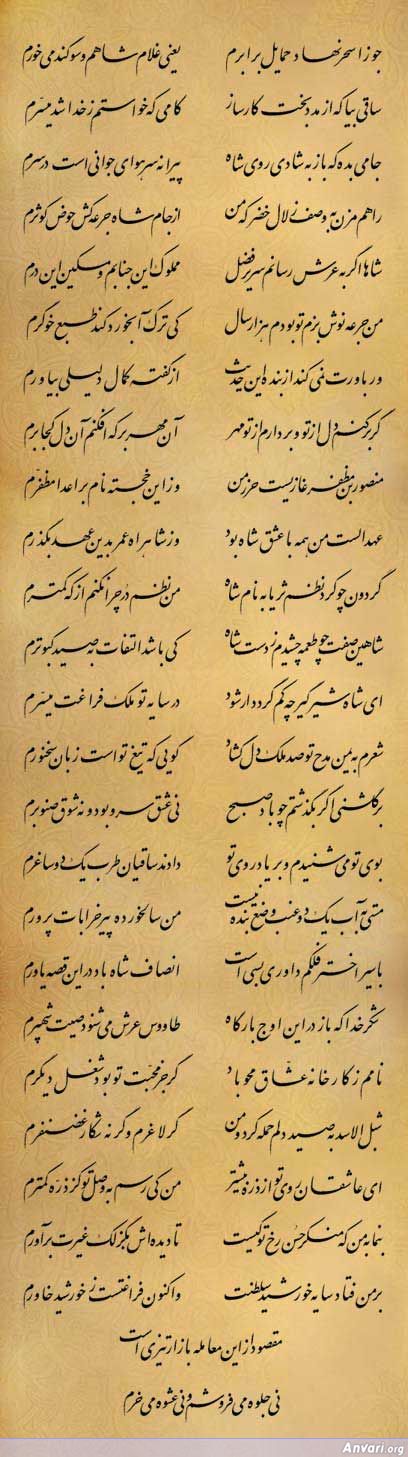 جوزا سحر نهاد حمایل برابرم یعنی غلام شاهم و سوگند می خورم
ساقی بیا که از مدد بخت کارساز کامی که خواستم ز خدا شد میسرم
جامی بده که باز به شادی روی شاه پیرانه سر هوای جوانی است در سرم
راهم مزن به وصف زلال خضر که من از جام شاه جرعه کش حوض کوثرم
شاها اگر به عرش رسانم سریر فضل مملوک این جنابم و مسکین این درم
من جرعه نوش بزم تو بودم هزار سال کی ترک آبخورد کند طبع خوگرم
ور باورت نمی کند از بنده این حدیث از گفته کمال دلیلی بیاورم
گر برکنم دل از تو و بردارم از تو مهر آن مهر بر که افکنم آن دل کجا برم
منصور بن مظفر غازیست حرز من وز این خجسته نام بر اعدا مظفرم
عهد الست من همه با عشق شاه بود وز شاهراه عمر بدین عهد بگذرم
گردون چو کرد نظم ثریا به نام شاه من نظم در چرا نکنم از که کمترم
شاهین صفت چو طعمه چشیدم ز دست شاه کی باشد التفات به صید کبوترم
ای شاه شیرگیر چه کم گردد ار شود در سایه تو ملک فراغت میسرم
شعرم به یمن مدح تو صد ملک دل گشاد گویی که تیغ توست زبان سخنورم
بر گلشنی اگر بگذشتم چو باد صبح نی عشق سرو بود و نه شوق صنوبرم
بوی تو می شنیدم و بر یاد روی تو دادند ساقیان طرب یک دو ساغرم
مستی به آب یک دو عنب وضع بنده نیست من سالخورده پیر خرابات پرورم
با سیر اختر فلکم داوری بسی است انصاف شاه باد در این قصه یاورم
شکر خدا که باز در این اوج بارگاه طاووس عرش می شنود صیت شهپرم
نامم ز کارخانه عشاق محو باد گر جز محبت تو بود شغل دیگرم
شبل الاسد به صید دلم حمله کرد و من گر لاغرم وگرنه شکار غضنفرم
ای عاشقان روی تو از ذره بیشتر من کی رسم به وصل تو کز ذره کمترم
بنما به من که منکر حسن رخ تو کیست تا دیده اش به گزلک غیرت برآورم
بر من فتاد سایه خورشید سلطنت و اکنون فراغت است ز خورشید خاورم
مقصود از این معامله بازارتیزی است
نی جلوه می فروشم و نی عشوه می خرم
Anvari.org